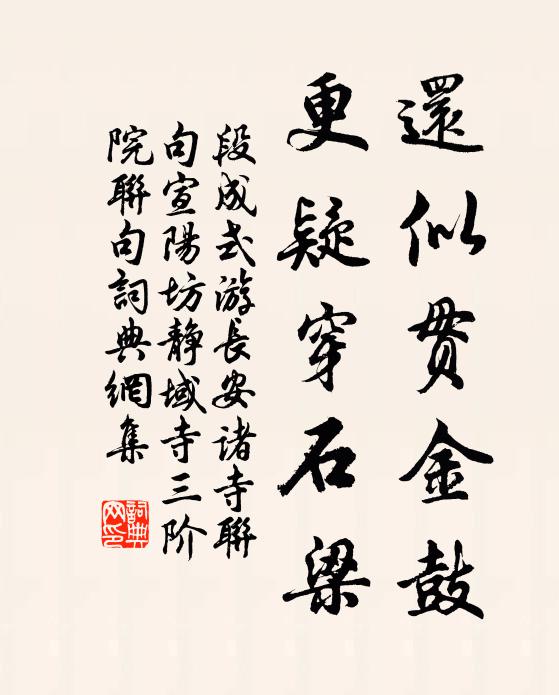 還似贯金鼓
更疑穿石梁
段成式游長安诸寺聯
句宣陽坊静域寺三阶
院聯句詞典網集
詞典网印